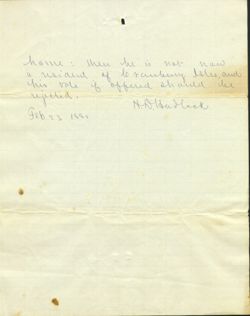 home: then he is not now
a resident of Cranberry Isles, and
his vote if offered should be
rejected.
H. D. Hadlock
Feb 23 188